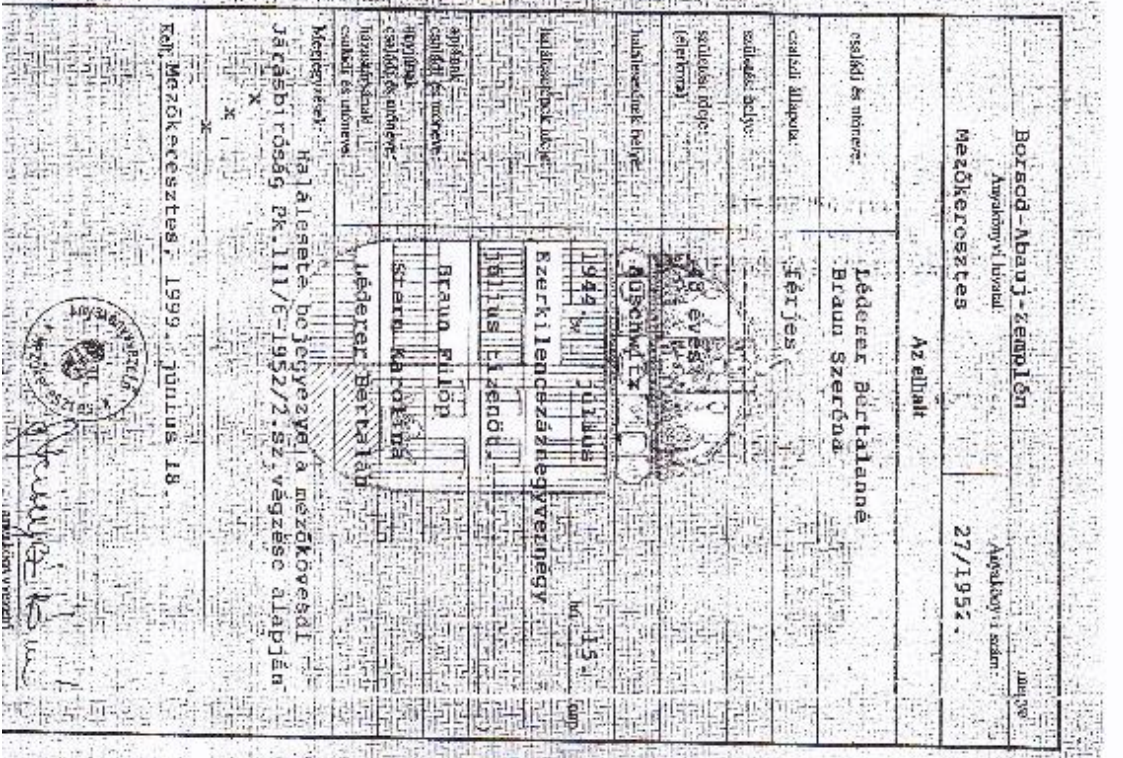 Borsod-Abauj-zemplén megye
Anyakönyvi hivatal: Anyakönyvi szám:
Mezőkeresztes 27/1952.
Az elhalt
családi és utóneve: Léderer Bertalanné
Braun Szeréna
családi állapota: férjes
születési helye:
születési ideje: (életkora) 48 éves
halálesetének helye: Auschwitz
halálesetének ideje: 1944. év Július hó 15. nap
Ezerkilencszáznegyvennégy
július tizenöt.
apjának családi és utóneve: Braun Fülöp
anyjának családi és utóneve: Stern Karolina
házastársának családi és utóneve: Léderer Bertalan
Megjegyzések: Halálesete bejegyezve a mezőkövesdi
Járásbíróság Pk.111/6-1952/2.sz.végzése alapján
x
x
x
Kelt, Mezőkeresztes, 1999. június 18.
anyakönyvvezető